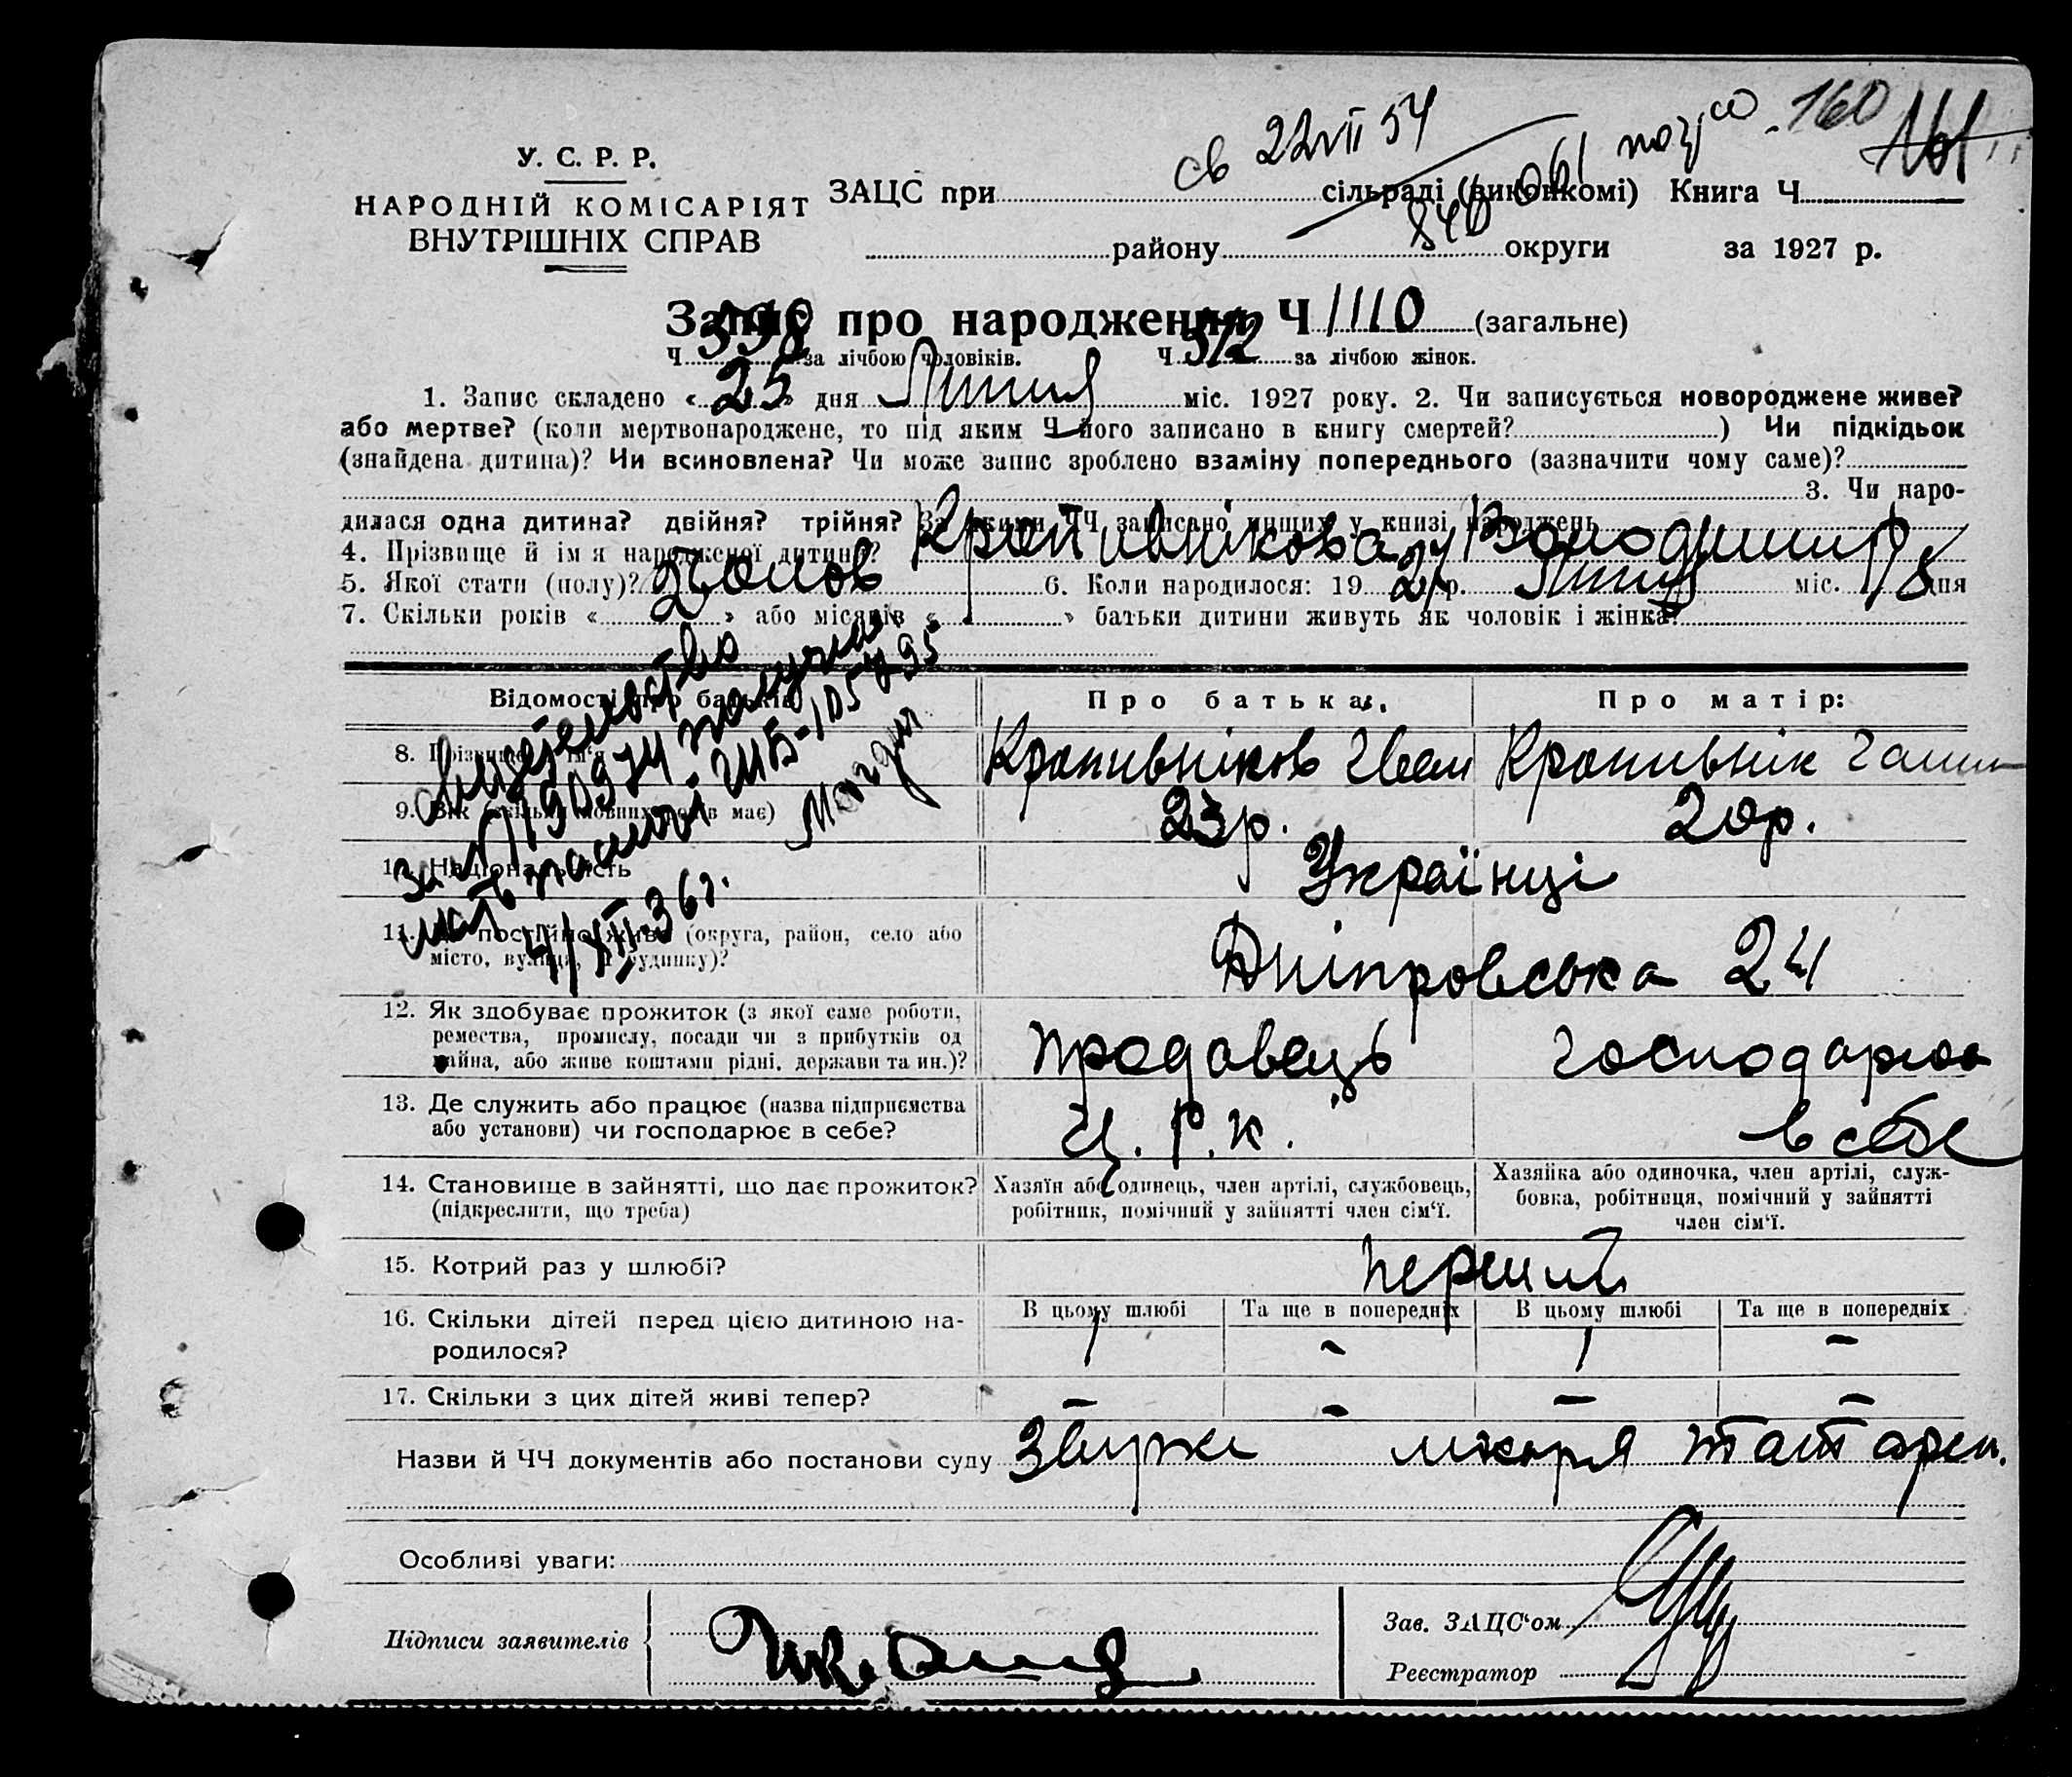 св 22 VII 54
160
161
У. С. Р. Р.
НАРОДНІЙ КОМІСАРІЯТ
ВНУТРІШНІХ СПРАВ
ЗАЦС при сільраді (виконкомі) Книга Ч.
району округи за 1927 р.
Запис про народження Ч 1110 (загальне)
Ч. 598 за лічбою чоловіків. Ч. 512 за лічбою жінок.
1. Запис складено « 25 » дня Липня міс. 1927 року. 2. Чи записується новороджене живе?
або мертве? (коли мертвонароджене, то під яким Ч його записано в книгу смертей? ) Чи підкідьок
(знайдена дитина)? Чи всиновлена? Чи може запис зроблено взаміну попереднього (зазначити чому саме)?
3. Чи наро-
дилася одна дитина? двійня? трійня? За якими ЧЧ записано инших у книзі народжень
4. Прізвище й ім'я народженої дитини? Кропивнікова Володимир
5. Якої стати (полу)? чолов 6. Коли народилося: 19 27 р. Липня міс. 18 дня
7. Скільки років « » або місяців « » батьки дитини живуть як чоловік і жінка?
Відомості про батьків Про батька: Про матір:
8. Прізвище й ім'я Кропивніков Іван Кропивнік Ганна
9. Вік (скільки повних років має) 23 р. 20 р.
10. Національність Українці
11. Де постійно живе (округа, район, село або
місто, вулиця, Ч будинку)? Дніпровська 24
12. Як здобуває прожиток (з якої саме роботи,
ремества, промислу, посади чи з прибутків од
майна, або живе коштами рідні, держави та ин.)? продавець господарює
13. Де служить або працює (назва підприємства
або установи) чи господарює в себе? Ц. Р. К. в себе
14. Становище в зайнятті, що дає прожиток?
(підкреслити, що треба)
Хазяїн або одинець, член артілі, службовець,
робітник, помічний у зайнятті член сім'ї.
Хазяйка або одиночка, член артілі, служ-
бовка, робітниця, помічний у зайнятті
член сім'ї.
15. Котрий раз у шлюбі? перший
16. Скільки дітей перед цією дитиною на-
родилося?
В цьому шлюбі Та ще в попередніх В цьому шлюбі Та ще в попередніх
1 - 1 -
17. Скільки з цих дітей живі тепер? - - - -
Назви й ЧЧ документів або постанови суду лікаря
Особливі уваги:
Підписи заявителів
Зав. ЗАЦС'ом
Реєстратор
4/XII-36г.